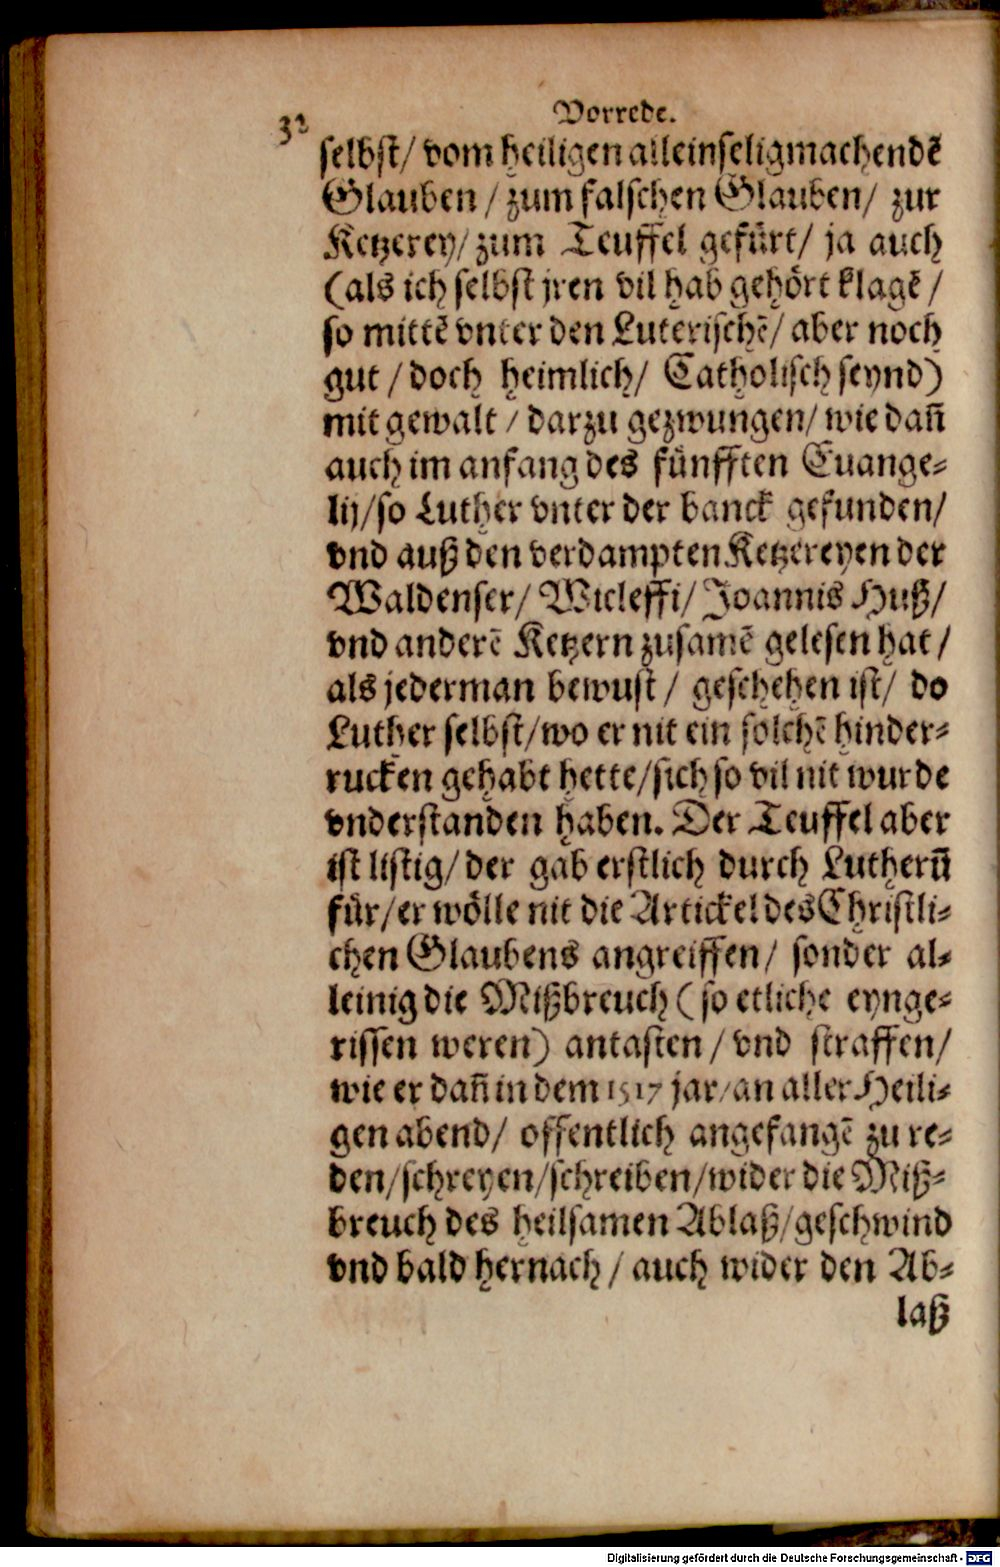 32
Vorrede.
selbst/ vom heiligen alleinseligmachendẽ
Glauben / zum falschen Glauben/ zur
Ketzerey/ zum Teuffel gefürt/ ja auch
(als ich selbst jren vil hab gehört klagẽ /
so mittẽ vnter den Luterischẽ/ aber noch
gut / doch heimlich/ Catholisch seynd)
mit gewalt / darzu gezwungen/ wie dañ
auch im anfang des fünfften Euange⸗
lij/so Luther vnter der banck gefunden/
vnd auß den verdampten Ketzereyen der
Waldenser/ Wicleffi/ Joannis Huß/
vnd anderẽ Ketzern zusamẽ gelesen hat /
als jederman bewust / geschehen ist/ do
Luther selbst/wo er nit ein solchẽ hinder⸗
rucken gehabt hette/sich so vil nit wurde
vnderstanden haben. Der Teuffel aber
ist listig/ der gab erstlich durch Lutherũ
für/er wölle nit die Artickel des Christli⸗
chen Glaubens angreiffen/ sonder al⸗
leinig die Mißbreuch (so etliche eynge⸗
rissen weren) antasten / vnd straffen/
wie er dañ in dem 1517 jar/an aller Heili⸗
gen abend/ offentlich angefangẽ zu re⸗
den/schreyen/schreiben/wider die Miß⸗
breuch des heilsamen Ablaß/geschwind
vnd bald hernach / auch wider den Ab⸗
laß
Digitalisierung gefördert durch die Deutsche Forschungsgemeinschaft - DFG